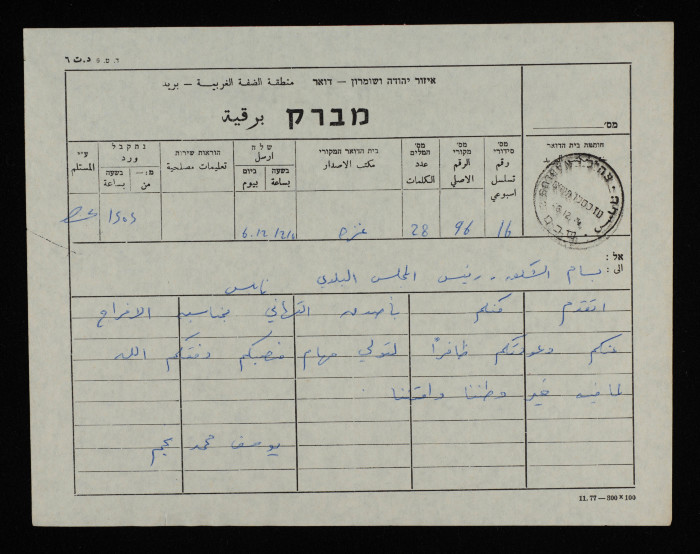 ד.ת ٦
איזור יהודה ושומרון — דואר منطقة الضفة الغربية — بريد
מברק برقية
מס׳
חותמת בית הדואר
מס׳ סידורי
رقم تسلسل اسبوعي
מס׳ מקורי
الرقم الاصلي
מס׳ המלים
عدد الكلمات
בית הדואר המקורי
مكتب الاصدار
שלח
ارسل
בשעה
بساعة
ביום
بيوم
הוראות שירות
تعليمات مصلحية
נתקבל
ورد
מ:—
من
בשעה
بساعة
ע״י
المستلم
16 96 28 غزه 6.12 1505
אל:
الى:
بسام الشكعه . رئيس المجلس البلدي نابلس
اتقدم منكم بأصدق التهاني بمناسبة الافراج
عنكم وعودتكم ظافرًا لتولي مهام منصبكم وفقكم الله
لما فيه خير وطننا وامتنا
يوسف محمد نجم
11.77—800×100